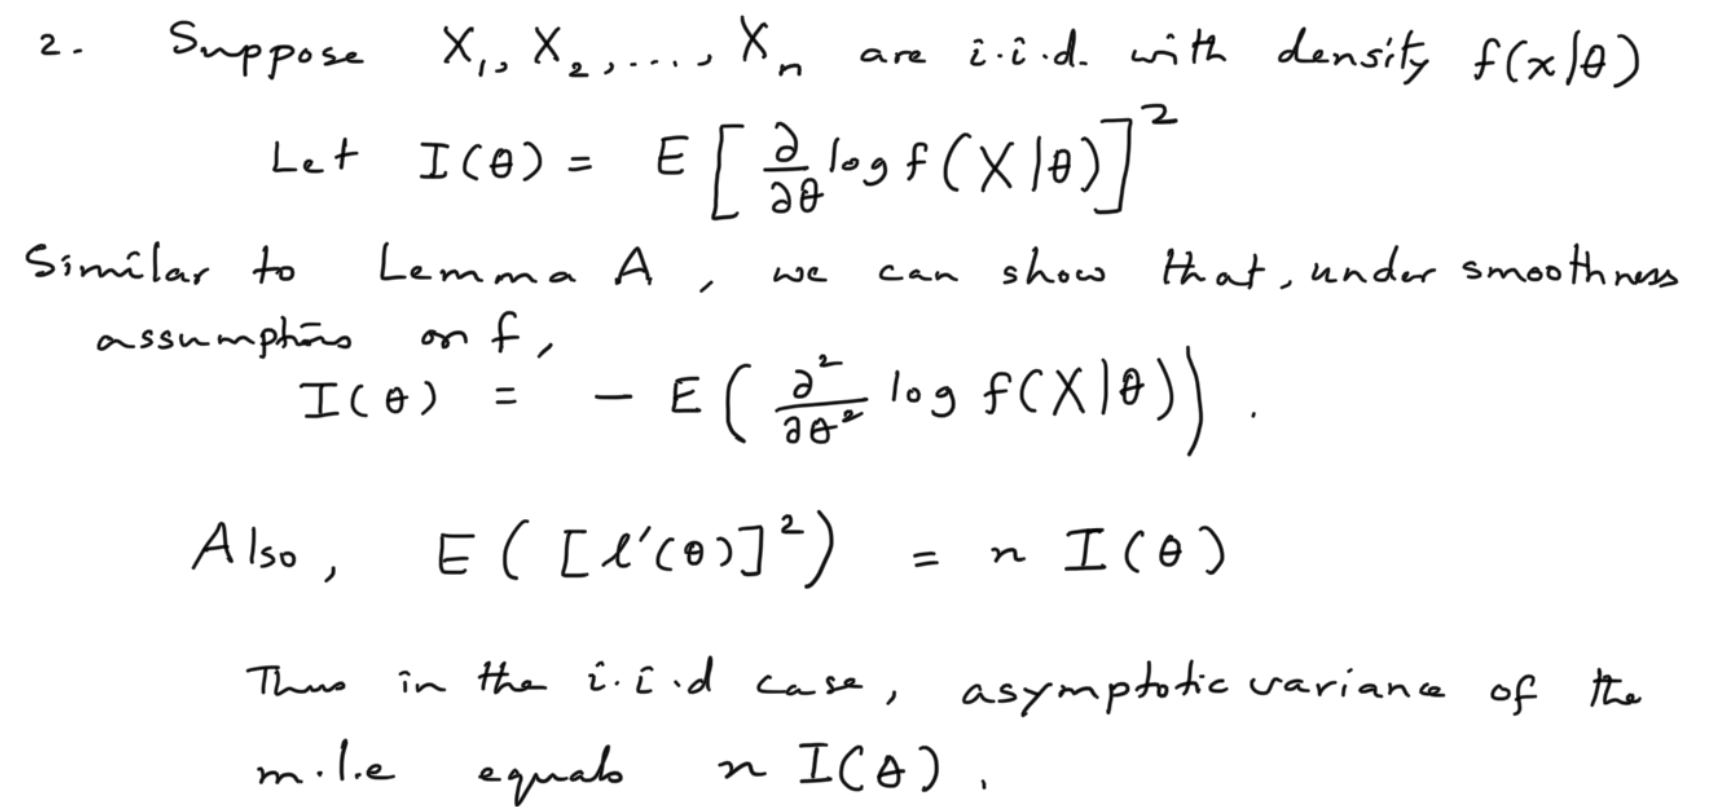 2. Suppose X₁, X₂, ..., Xₙ are i.i.d. with density f(x|θ)
Let I(θ) = E[∂/∂θ log f(X|θ)]²
Similar to Lemma A, we can show that, under smoothness
assumptions on f,
I(θ) = − E(∂²/∂θ² log f(X|θ)).
Also, E([l′(θ)]²) = n I(θ)
Thus in the i.i.d case, asymptotic variance of the
m.l.e equals n I(θ).